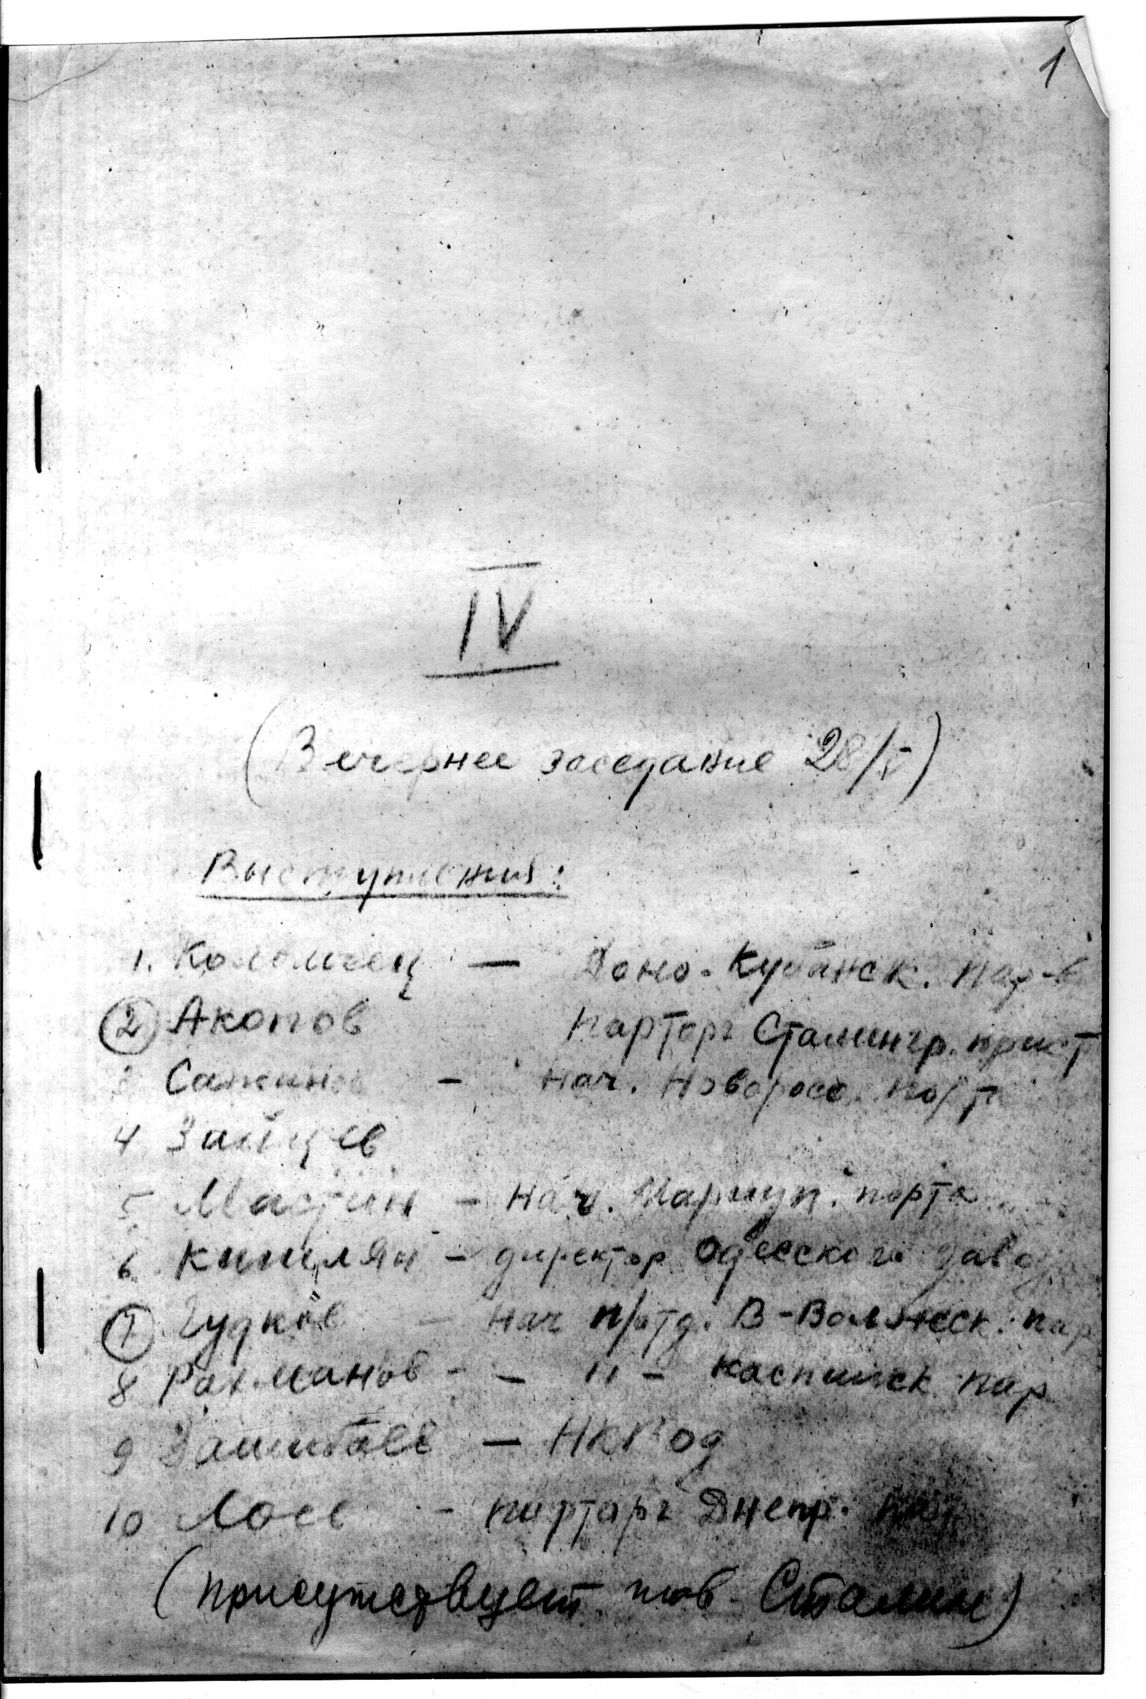 1
IV
(Вечернее заседание 28/V)
Выступления:
1. Коломиец — Доно-Кубанск. пар-в
2 Акопов парторг Сталингр. прист
3 Сажинов – Нач.Новоросс. порта
4 Зайцев
5 Мастин – Нач. Мариуп. порта
6 – директор Одесского завода
7 Гудков – Нач п/отд. В-Волжск. пар
8 Рахманов – – " – Каспийск пар
9 – НКВод
10 Лосев – парторг Днепр.
(присутствует тов Сталин)